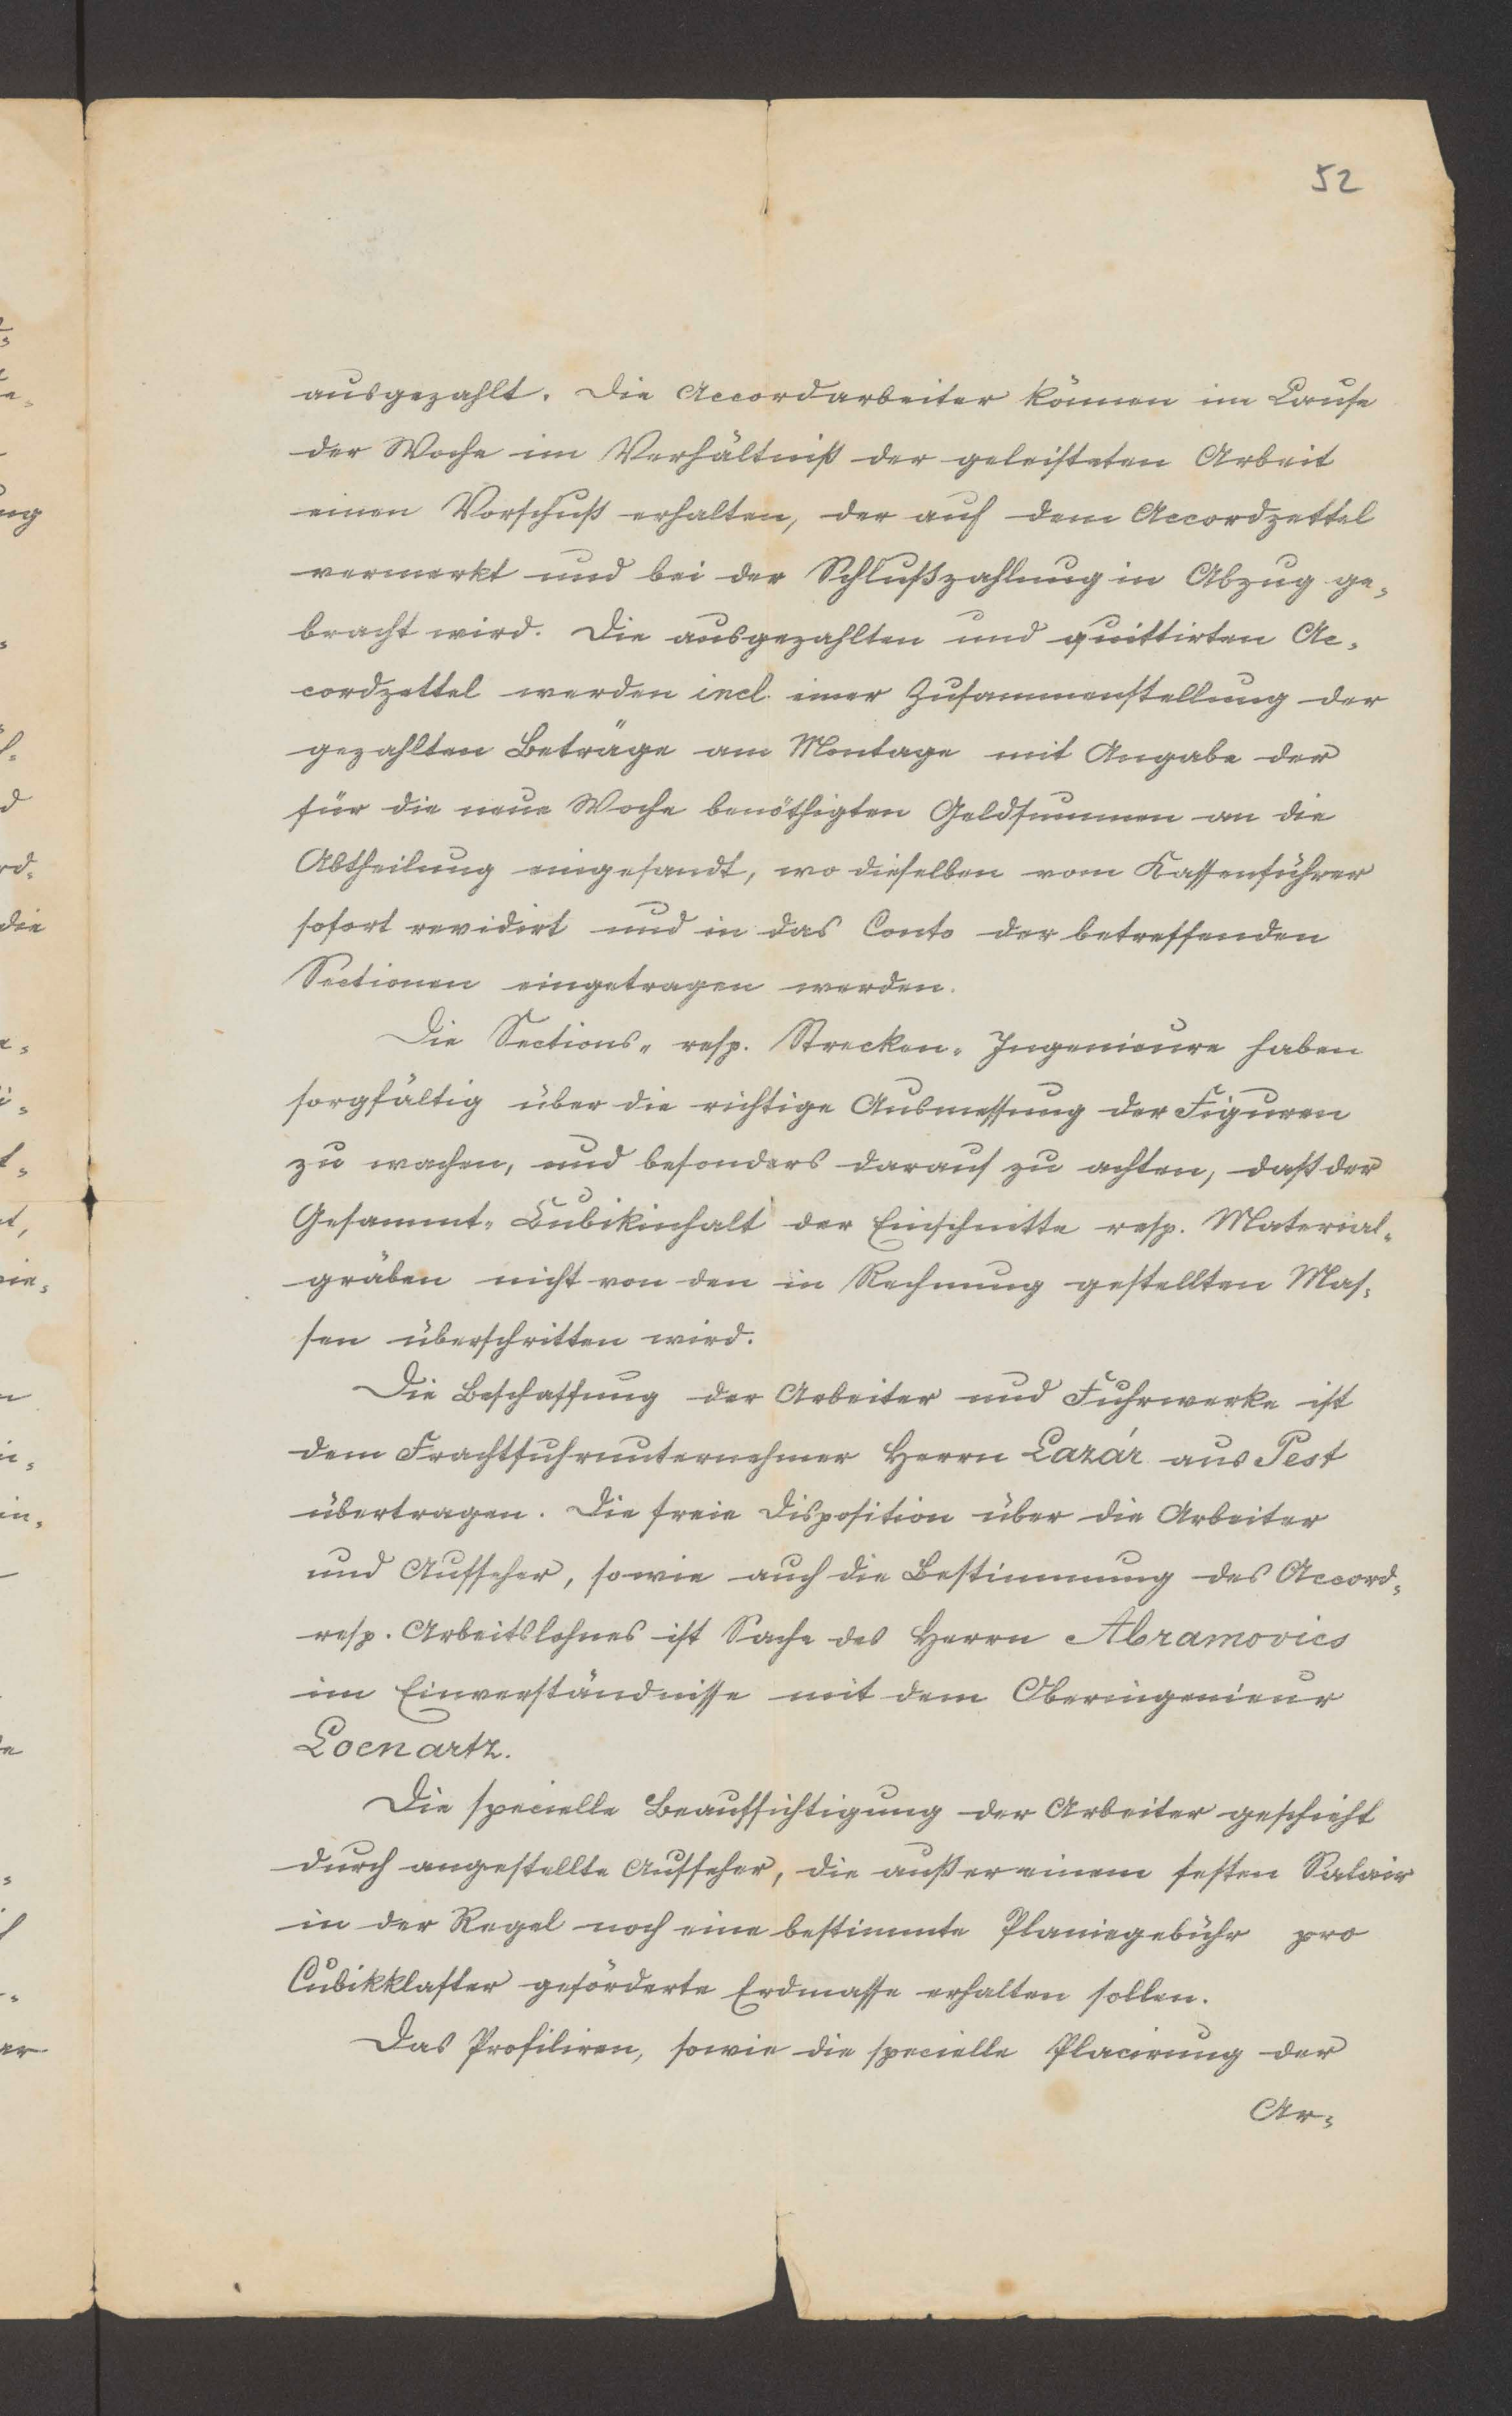 52
ausgezahlt. Die Accordarbeiter können im Laufe
der Woche im Verhältniß der geleisteten Arbeit
einen Vorschuß erhalten, der auf dem Accordzettel
vermerkt und bei der Schlußzahlung in Abzug ge-
bracht wird. Die ausgezahlten und quittirten Ac-
cordzettel werden incl. einer Zusammenstellung der
gezahlten Beträge am Montage mit Angabe der
für die neue Woche benöthigten Geldsummen an die
Abtheilung eingesandt, wo dieselben vom Kassenführer
sofort revidirt und in das Conto der betreffenden
Sectionen eingetragen werden.
Die Sections- resp. Strecken-Ingenieure haben
sorgfältig über die richtige Ausmessung der Figuren
zu wachen, und besonders darauf zu achten, daß der
Gesammt-Cubikinhalt der Einschnitte resp. Material-
gräben nicht von den in Rechnung gestellten Mas-
sen überschritten wird.
Die Beschaffung der Arbeiter und Fuhrwerke ist
dem Frachtfuhrunternehmer Herrn Lazár aus Pest
übertragen. Die freie Disposition über die Arbeiter
und Aufseher, sowie auch die Bestimmung des Accord-
resp. Arbeitslohnes ist Sache des Herrn Abramovics
im Einverständnisse mit dem Oberingenieur
Loenartz.
Die specielle Beaufsichtigung der Arbeiter geschieht
durch angestellte Aufseher, die außer einem festen Salair
in der Regel noch eine bestimmte Planiegebühr pro
Cubikklafter geförderte Erdmasse erhalten sollen.
Das Profiliren, sowie die specielle Placirung der
Ar-